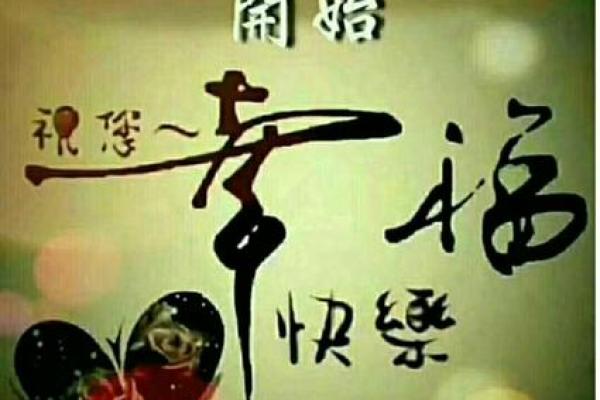 開始
祝您~幸福
快樂